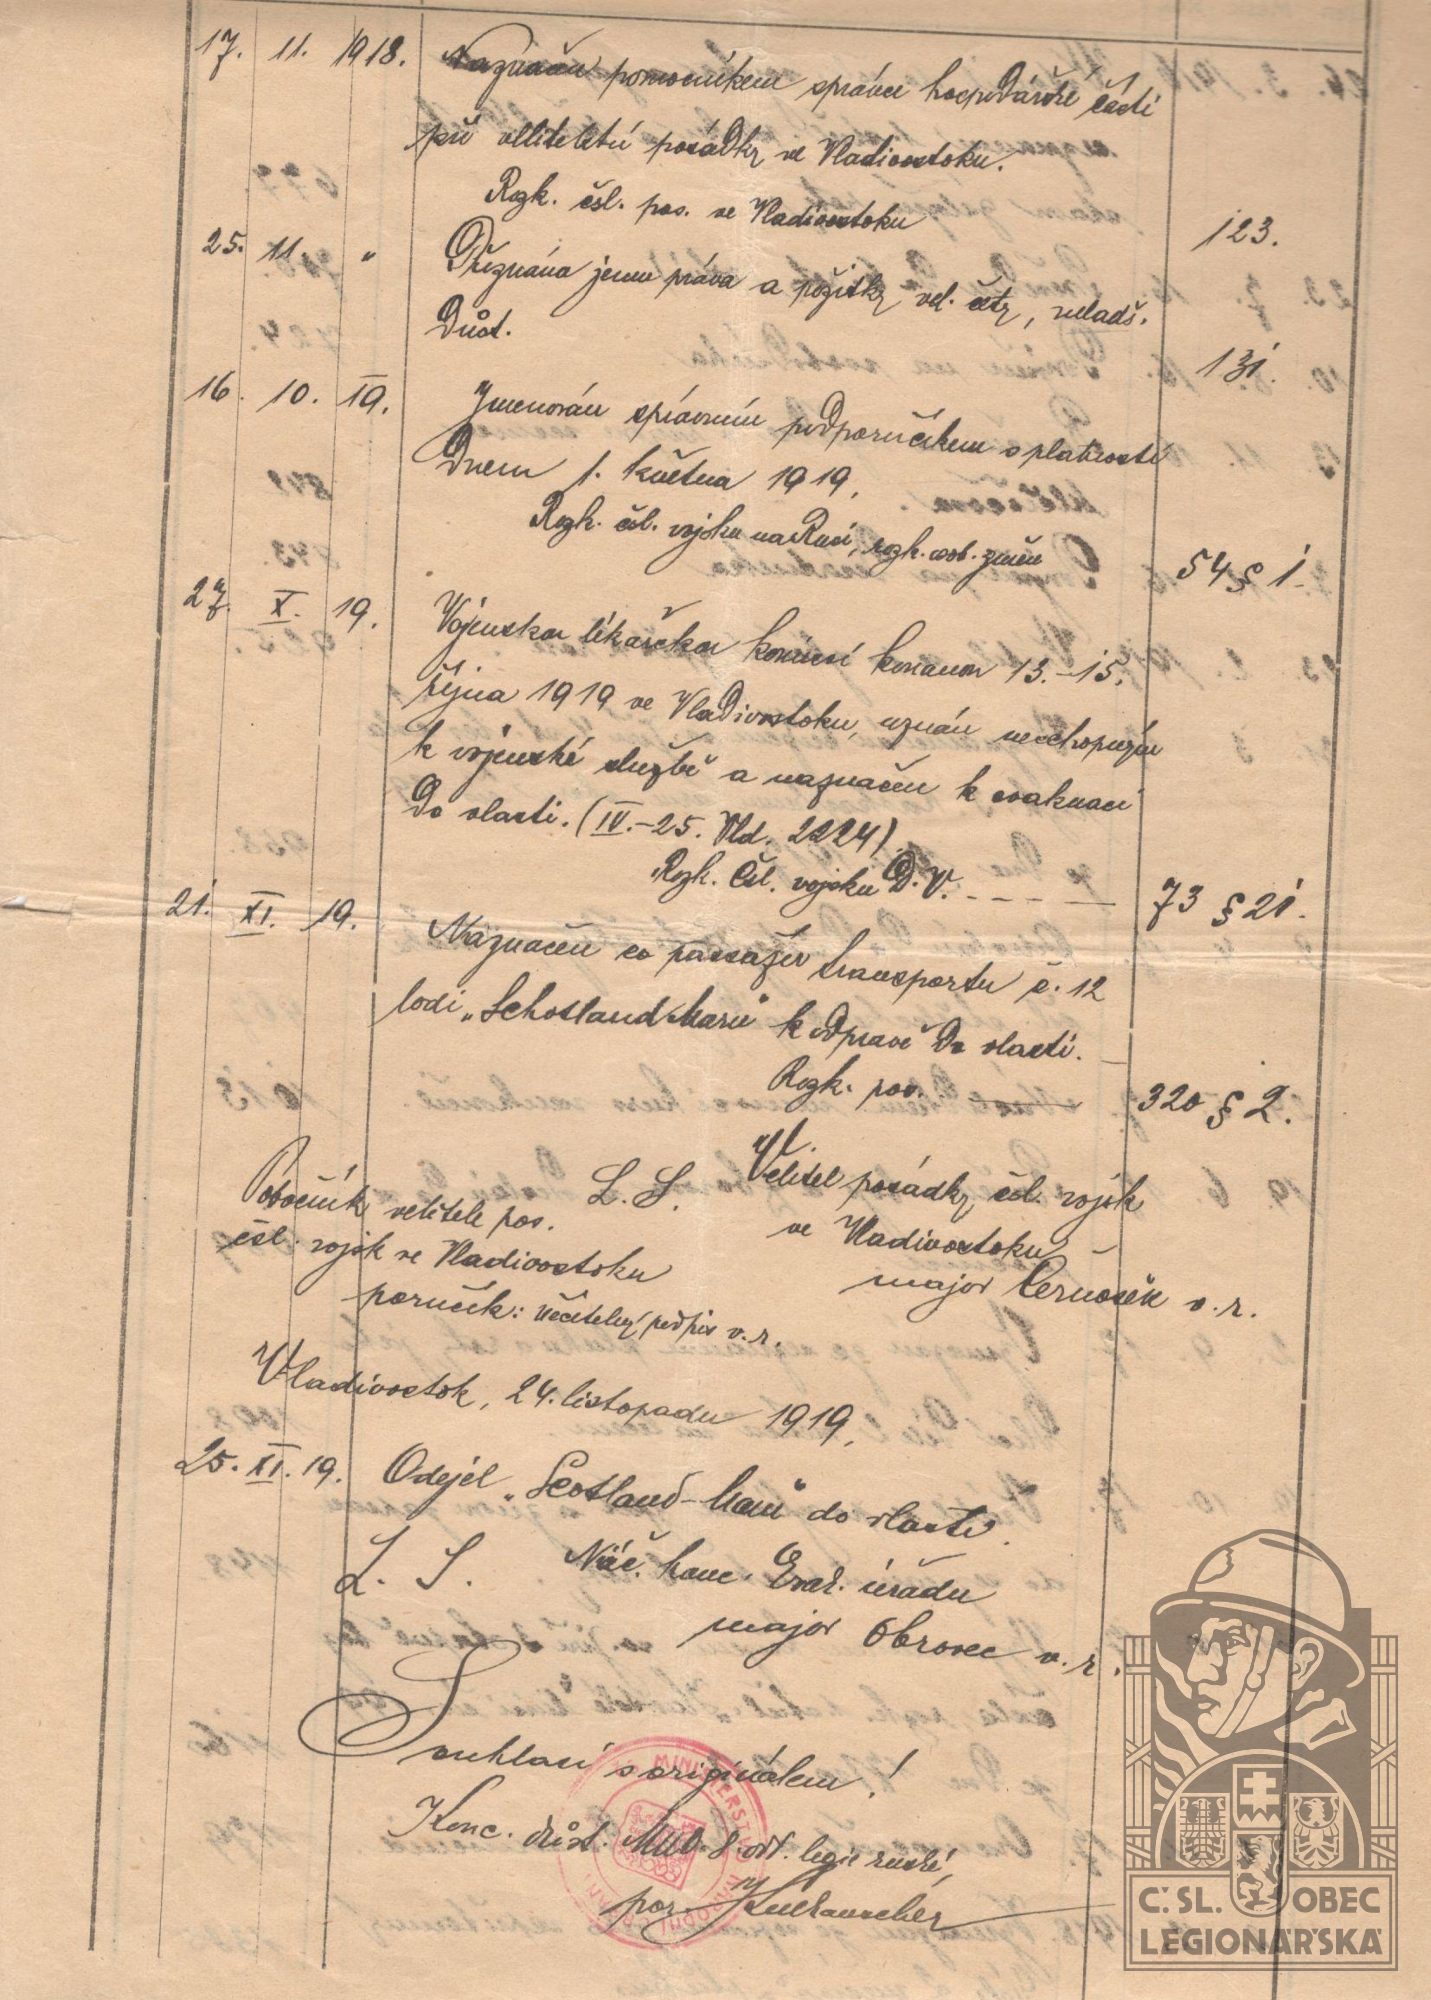 17. 11. 1918. Naznačen pomocníkem správce hospodářské části
při velitelství posádky ve Vladivostoku.
Rozk. čsl. pos. ve Vladivostoku 123.
25. 11. „ Přiznána jemu práva a požitky vel. čety, mladš.
důst. 131.
16. 10. 19. Jmenován správním podporučíkem s platností
dnem 1. května 1919,
Rozk. čsl. vojsku na Rusi, rozk. osob. změn 54 § 1.
27. X. 19. Vojenskou lékařskou komisí konanou 13.–15.
října 1919 ve Vladivostoku, uznán neschopným
k vojenské službě a naznačen k evakuaci
do vlasti. (IV.–25. Vld. 2224)
Rozk. Čsl. vojsku D. V. 73 § 21.
21. XI. 19. Naznačen co passažér transportu č. 12
lodi „Schotland Maru“ k odpravě do vlasti.
Rozk. pos. 320 § 2.
Pobočník velitele pos.
čsl. vojsk ve Vladivostoku
poručík: nečitelný podpis v. r.
L. S.
Velitel posádky čsl. vojsk
ve Vladivostoku
major Černošek v. r.
Vladivostok, 24. listopadu 1919,
25. XI. 19. Odejel „Scotland-Maru“ do vlasti.
L. S. Náč. kanc. Evak. úřadu
major Obrovec v. r.
Souhlasí s originálem!
Kanc. důst. MNO. 8. odd. legie ruské,
por.
MINISTERSTVO NÁRODNÍ
Č'SL. OBEC
LEGIONÁŘSKÁ